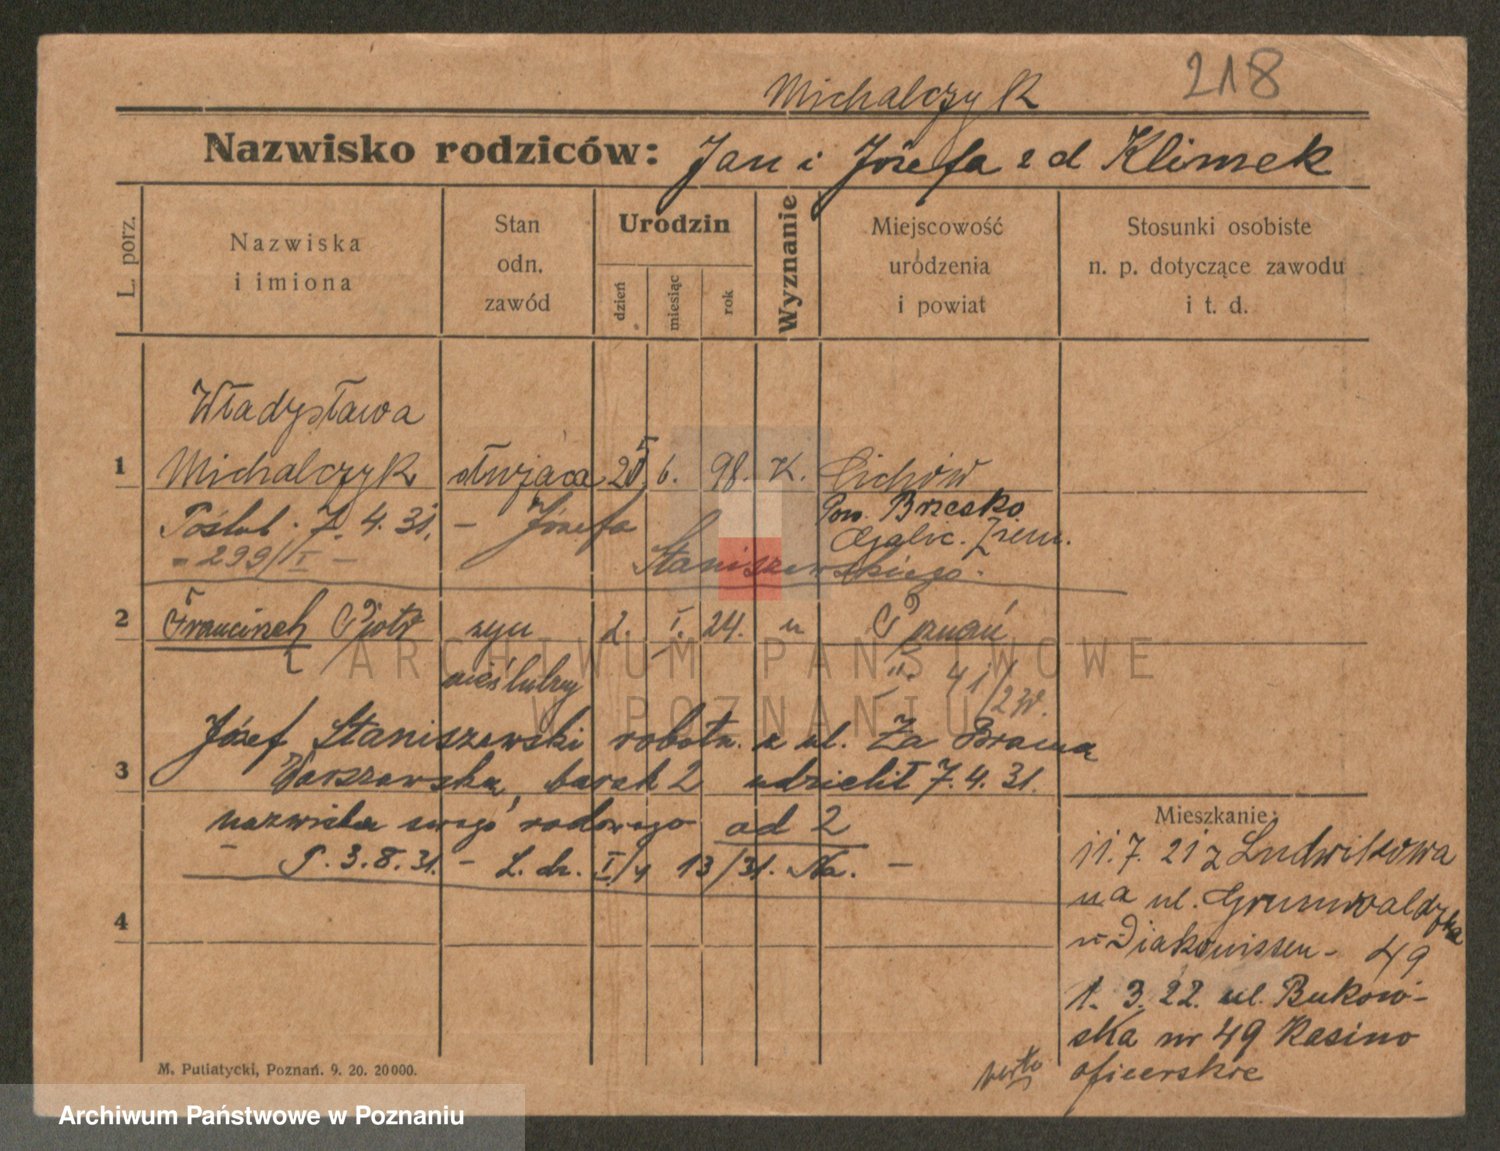 218
Michalczyk
Nazwisko rodziców: Jan i Józefa z d Klimek
L. porz.
Nazwiska
i imiona
Stan
odn.
zawód
Urodzin
dzień
miesiąc
rok
Wyznanie
Miejscowość
urodzenia
i powiat
Stosunki osobiste
n. p. dotyczące zawodu
i t. d.
Władysława
1 Michalczyk służąca 6. 98. K. Cichów
Pow. Brzesko
Poślub. 7. 4. 31. – Józefa Galic.
299/I – Staniszewskiego.
2 Franciszek Piotr syn 2. I. 24. " Poznań
nieślubny II. 41/24.
Józef Staniszewski robotn. ul. Za Bramą
3 Warszawską, barak 2 udzielił 7. 4. 31.
nazwiska swego rodowego ad 2
P. 3. 8. 31. – L. dz. 13/31. Na. –
4
Mieszkanie:
11. 7. 21 z Ludwikowa
na ul. Grunwaldzka
Diakonissen – 49
1. 3. 22. ul. Bukow-
ska nr 49 Kasino
oficerskie
verte
M. Putiatycki, Poznań. 9. 20. 20000.
ARCHIWUM PAŃSTWOWE
W POZNANIU
Archiwum Państwowe w Poznaniu